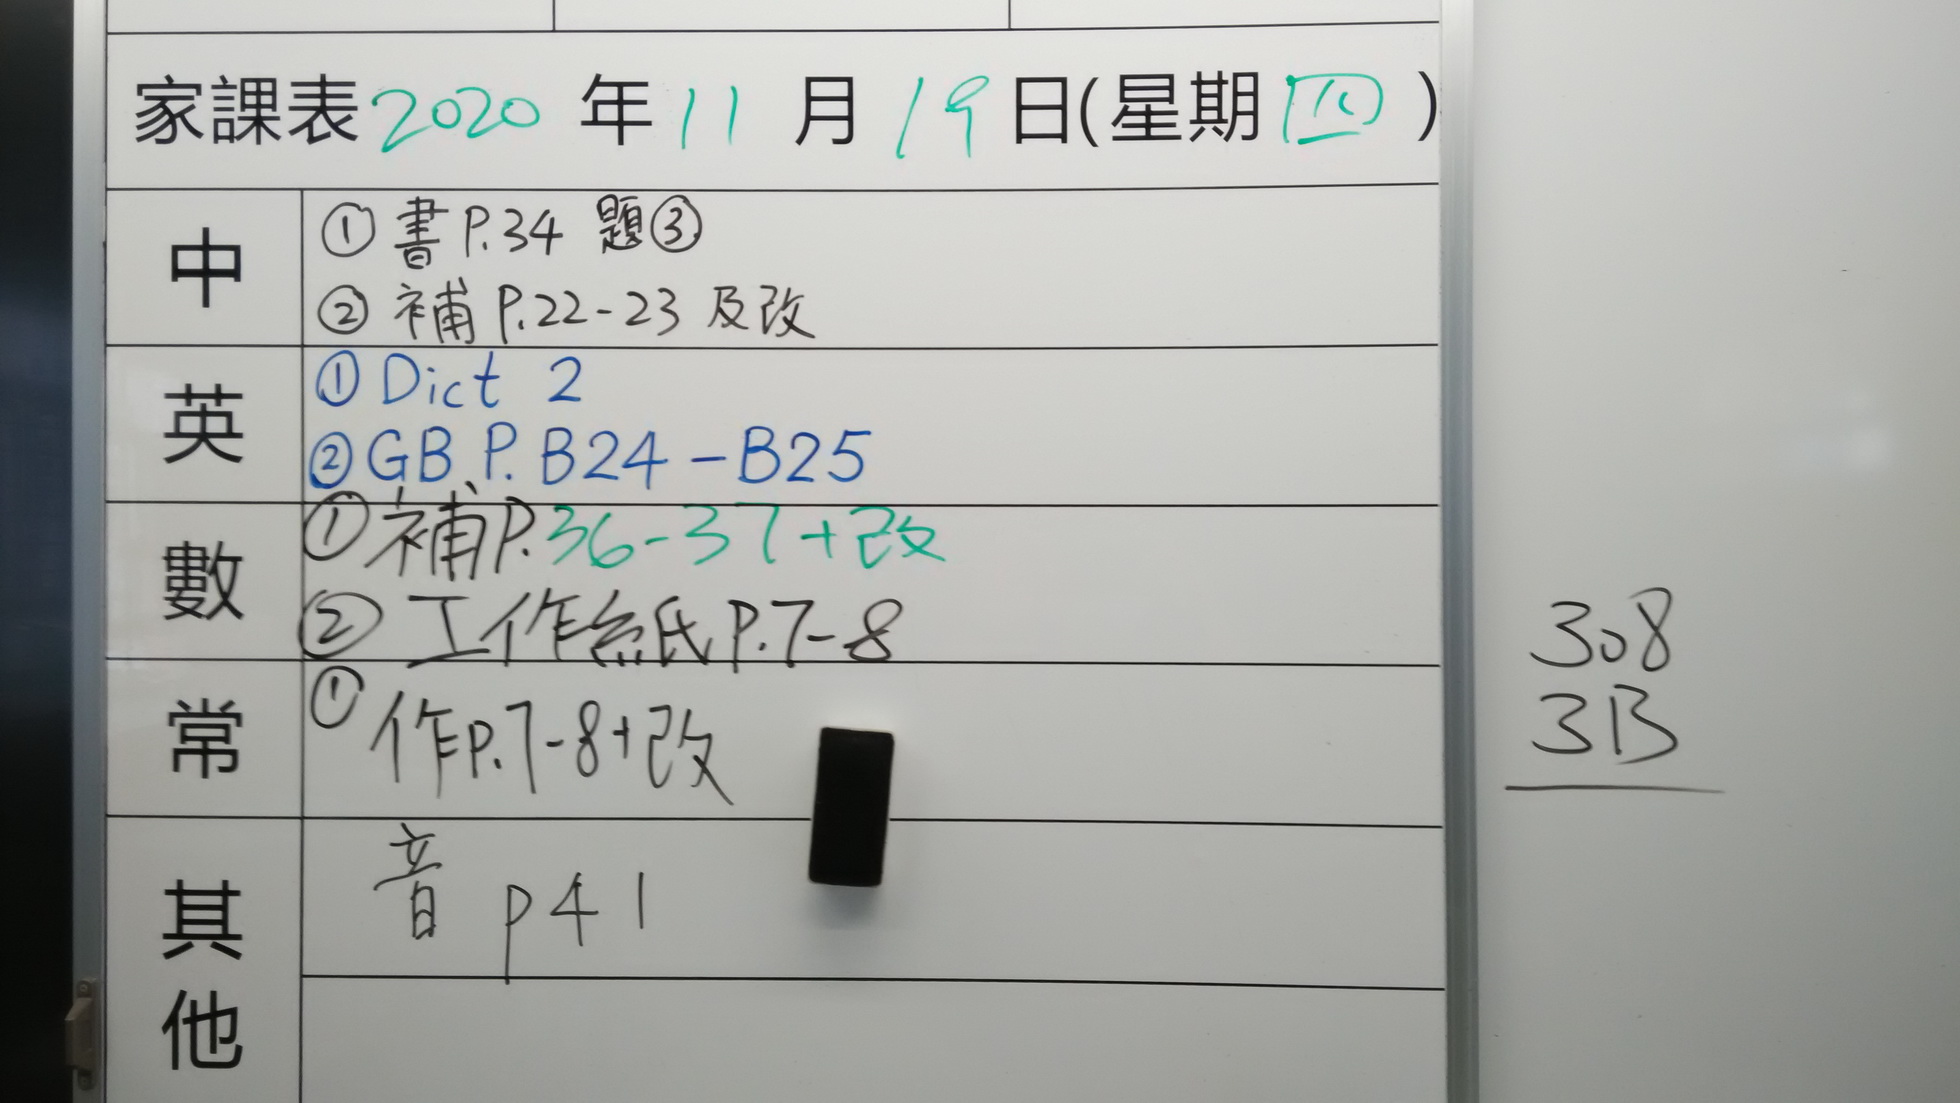 家課表 2020 年 11 月 19 日(星期 四 )
中
① 書 P.34 題③
② 補 P.22-23 及改
英
① Dict 2
② GB P. B24-B25
數
① 補P.36-37+改
② 工作紙 P.7-8
常
① 作P.7-8+改
其他
音 p41
308
3B